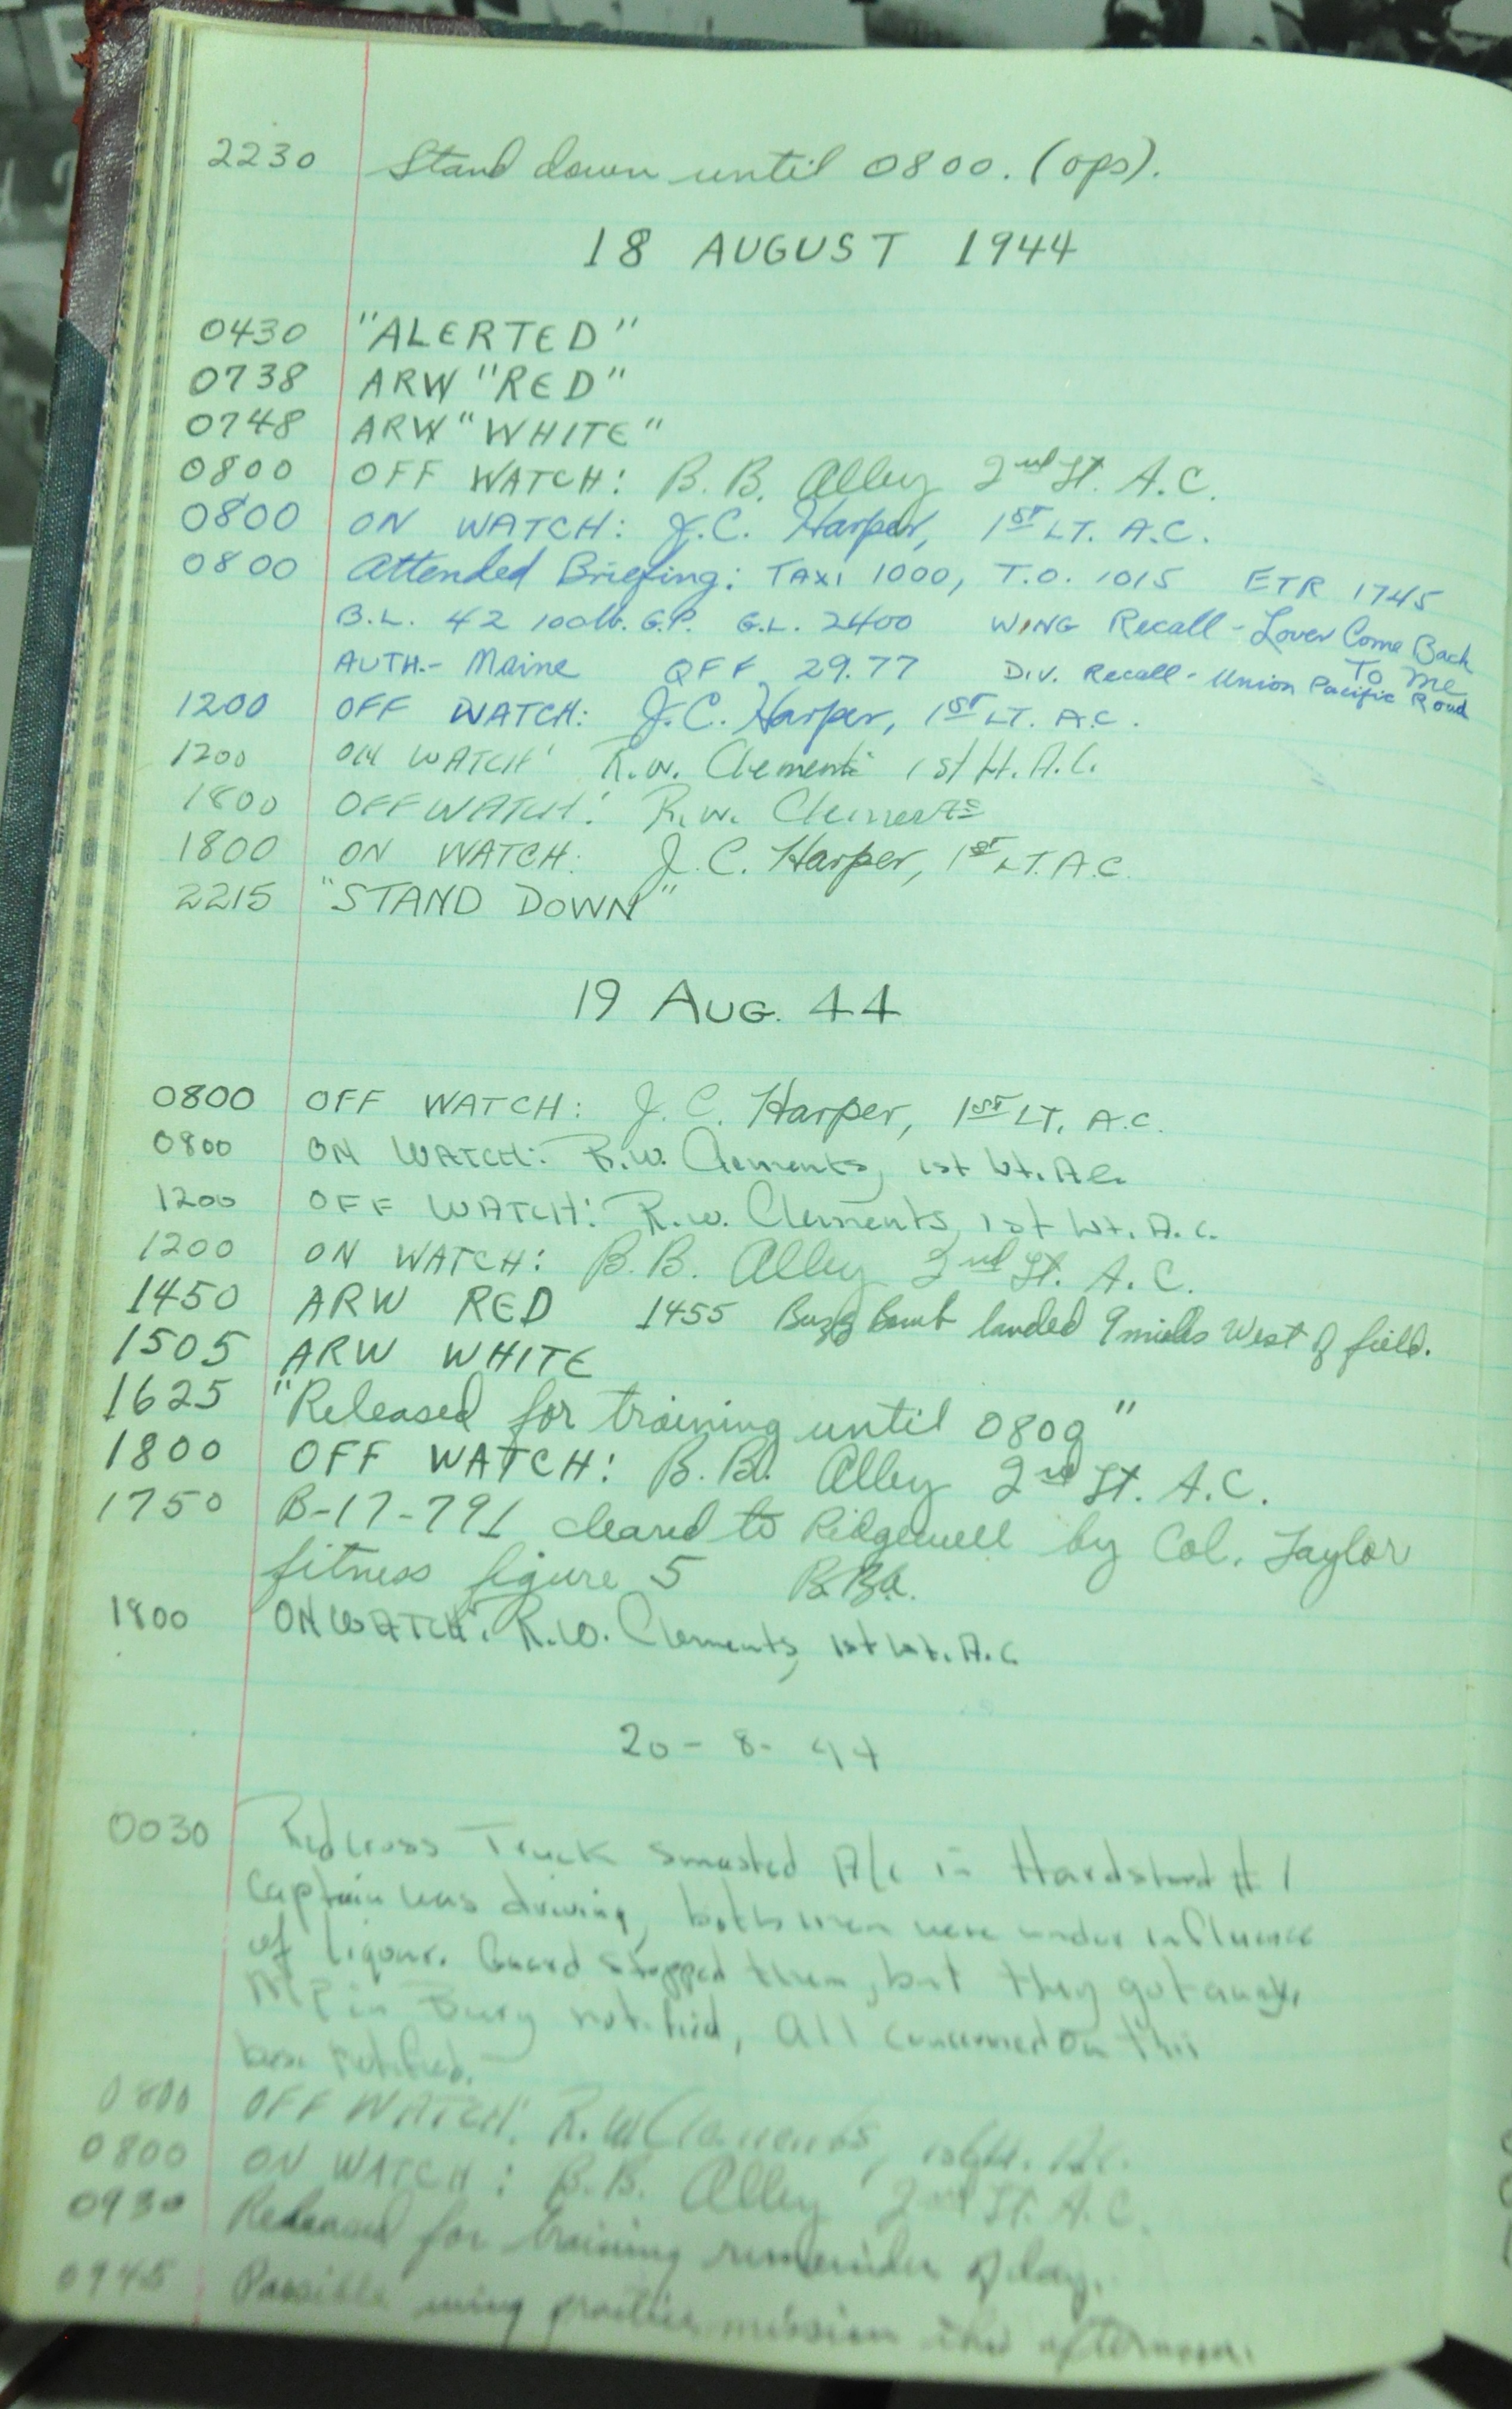 2230 Stand down until 0800. (ops).
18 AUGUST 1944
0430 "ALERTED"
0738 ARW "RED"
0748 ARW "WHITE"
0800 OFF WATCH: B. B. Alley 2nd Lt. A.C.
0800 ON WATCH: J.C. Harper, 1ST LT. A.C.
0800 Attended Briefing: TAXI 1000, T.O. 1015 ETR 1745
B.L. 42 100lb. G.P. G.L. 2400 WING Recall - Lover Come Back To Me
AUTH.- Maine QFF 29.77 DIV. Recall - Union Pacific Road
1200 OFF WATCH: J.C. Harper, 1ST LT. A.C.
1200 ON WATCH: R.W. Clements 1st Lt. A.C.
1800 OFF WATCH: R.W. Clements
1800 ON WATCH: J.C. Harper, 1ST LT. A.C.
2215 "STAND DOWN"
19 AUG. 44
0800 OFF WATCH: J.C. Harper, 1ST LT. A.C.
0800 ON WATCH: R.W. Clements, 1st Lt. A.C.
1200 OFF WATCH: R.W. Clements, 1st Lt. A.C.
1200 ON WATCH: B.B. Alley 2nd Lt. A.C.
1450 ARW RED 1455 Buzz Bomb landed 9 miles West of field.
1505 ARW WHITE
1625 "Released for training until 0800"
1800 OFF WATCH: B.B. Alley 2nd Lt. A.C.
1750 B-17-791 cleared to Ridgewell by Col. Taylor
fitness figure 5 B.B.A.
1800 ON WATCH: R.W. Clements, 1st Lt. A.C
20-8-44
0030 Red cross Truck smashed A/c in Hardstand # 1
Captain was driving, both men were under influence
of liquor. Guard stopped them, but they got away.
MP in Bury notified, All concerned on this
base notified.
0800 OFF WATCH: R.W. Clements, 1st Lt. A.C.
0800 ON WATCH: B.B. Alley 2nd Lt. A.C.
0930 Released for training remainder of day.
0945 Possible wing practice mission this afternoon.